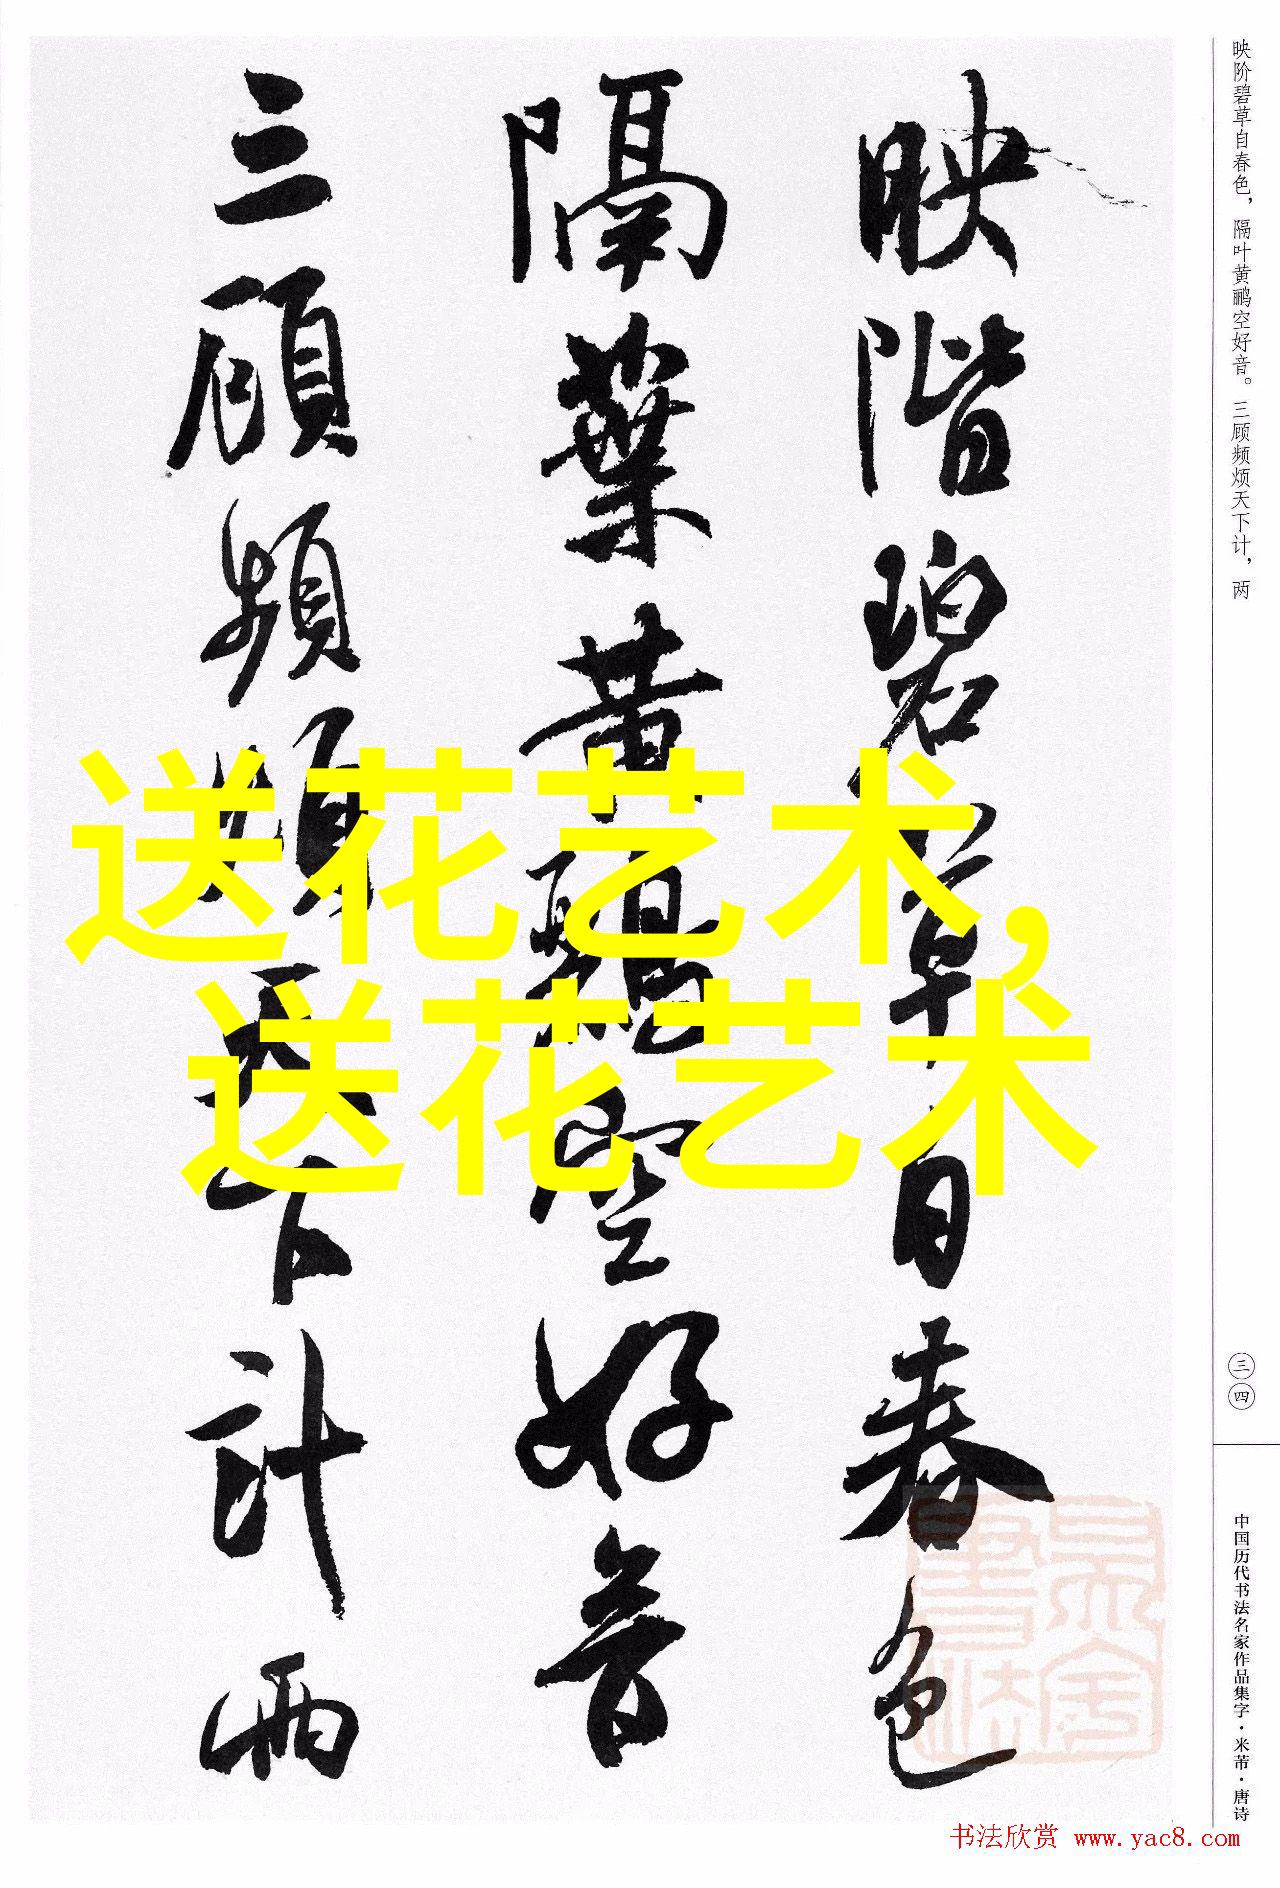 映阶碧草自春色，隔叶黄鹂空好音。三顾频烦天下计，两
三四
中国历代书法名家作品集字·米芾·唐诗
映階碧草自春色
隔葉黄鸝空好音
三顧頻煩天下計兩
送花艺术,
送花艺术
书法欣赏 www.yac8.com